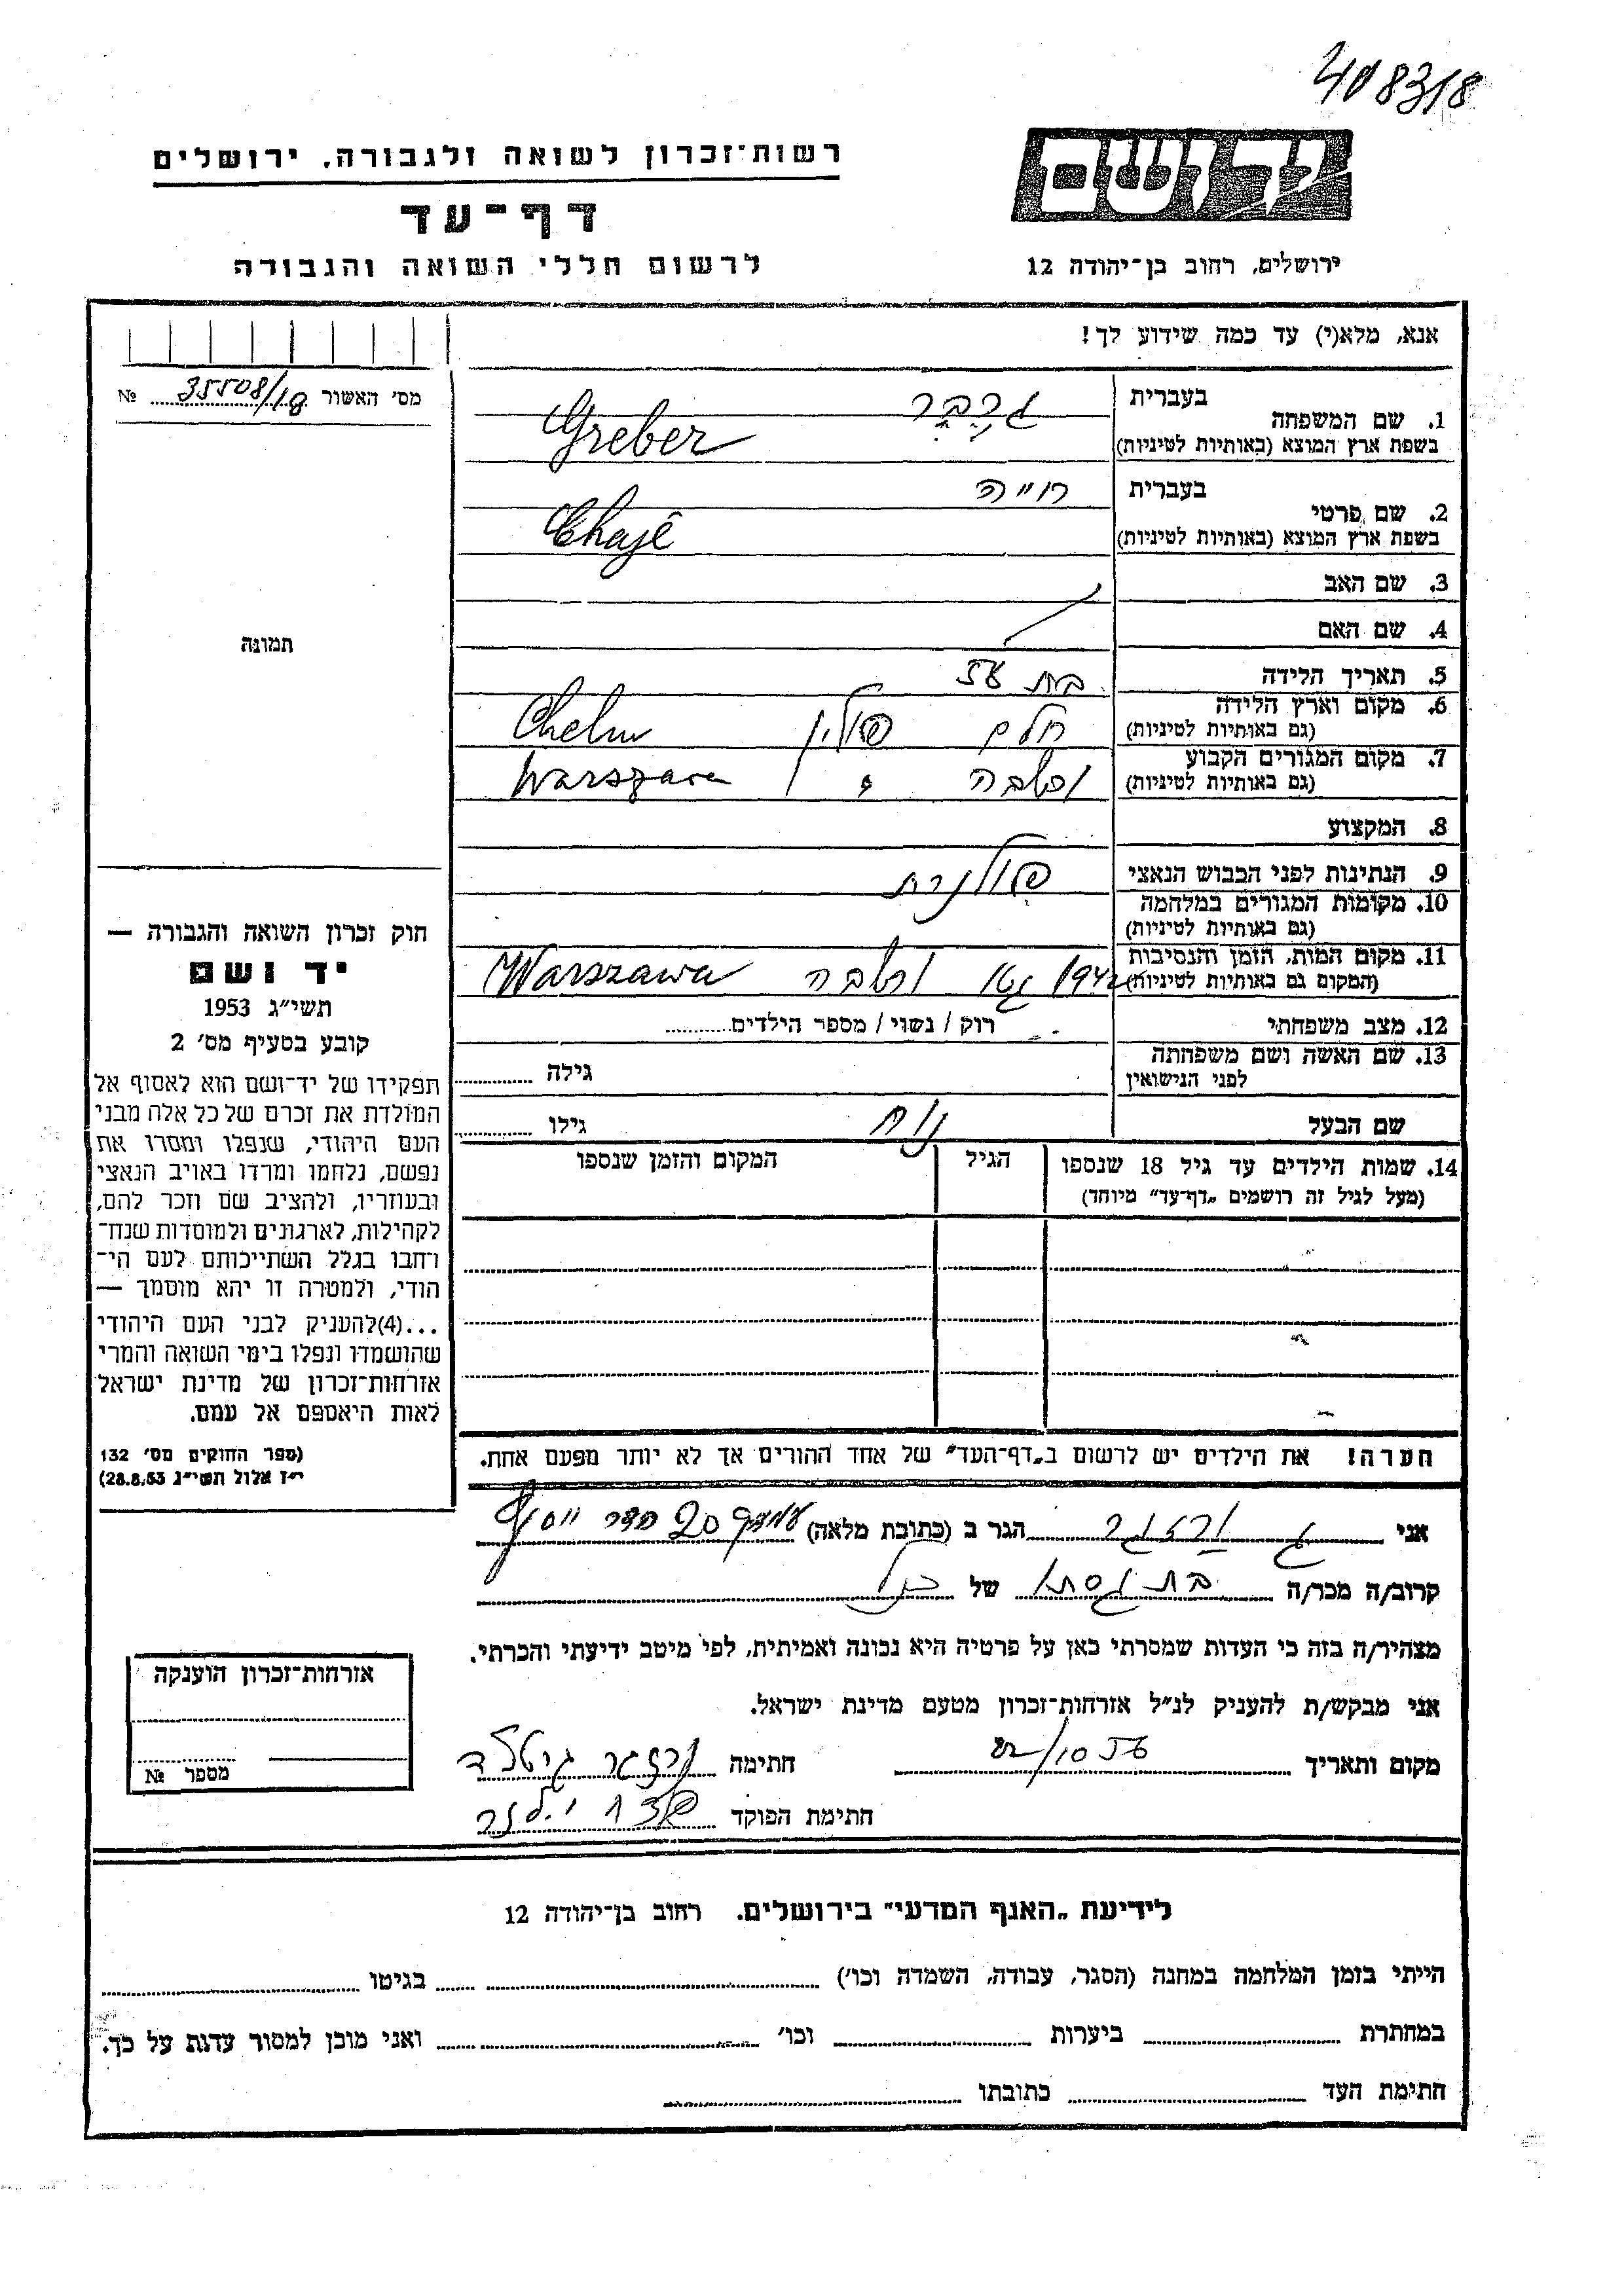 408318
רשות־זכרון לשואה ולגבורה, ירושלים
דף־עד
לרשום חללי השואה והגבורה
יד ושם
ירושלים, רחוב בן־יהודה 12
אנא, מלא(י) עד כמה שידוע לך!
מס׳ האשור 35508/18 №
1. שם המשפחה בעברית גרבר
בשפת ארץ המוצא (באותיות לטיניות) Greber
2. שם פרטי בעברית חייה
בשפת ארץ המוצא (באותיות לטיניות) Chajê
3. שם האב
4. שם האם
5. תאריך הלידה בת
6. מקום וארץ הלידה חלם פולין Chelm
(גם באותיות לטיניות)
7. מקום המגורים הקבוע ורשבה Warszawa
(גם באותיות לטיניות)
8. המקצוע
9. הנתינות לפני הכבוש הנאצי פולנית
10. מקומות המגורים במלחמה
(גם באותיות לטיניות)
11. מקום המות, הזמן והנסיבות 1942 גטו ורשבה Warszawa
(המקום גם באותיות לטיניות)
12. מצב משפחתי רוק / נשוי / מספר הילדים
13. שם האשה ושם משפחתה גילה
לפני הנישואין
שם הבעל נח גילו
14. שמות הילדים עד גיל 18 שנספו הגיל המקום והזמן שנספו
(מעל לגיל זה רושמים „דף־עד״ מיוחד)
הערה! את הילדים יש לרשום ב„דף־העד״ של אחד ההורים אך לא יותר מפעם אחת.
תמונה
חוק זכרון השואה והגבורה —
יד ושם
תשי״ג 1953
קובע בסעיף מס׳ 2
תפקידו של יד־ושם הוא לאסוף אל
המולדת את זכרם של כל אלה מבני
העם היהודי, שנפלו ומסרו את
נפשם, נלחמו ומרדו באויב הנאצי
ובעוזריו, ולהציב שם וזכר להם,
לקהילות, לארגונים ולמוסדות שנח־
רחבו בגלל השתייכותם לעם הי־
הודי, ולמטרה זו יהא מוסמך —
...(4)להעניק לבני העם היהודי
שהושמדו ונפלו בימי השואה והמרי
אזרחות־זכרון של מדינת ישראל
לאות היאספם אל עמם.
(ספר החוקים מס׳ 132
י״ז אלול תשי״ג 28.8.53)
אני הגר ב (כתובת מלאה) 20
קרוב/ה מכר/ה בת גיסתו של
מצהיר/ה בזה כי העדות שמסרתי כאן על פרטיה היא נכונה ואמיתית, לפי מיטב ידיעתי והכרתי.
אני מבקש/ת להעניק לנ״ל אזרחות־זכרון מטעם מדינת ישראל.
מקום ותאריך 22/10 56 חתימה
חתימת הפוקד
אזרחות־זכרון הוענקה
מספר №
לידיעת „האגף המדעי״ בירושלים. רחוב בן־יהודה 12
הייתי בזמן המלחמה במחנה (הסגר, עבודה, השמדה וכו׳) בגיטו
במחתרת ביערות וכו׳ ואני מוכן למסור עדות על כך.
חתימת העד כתובתו